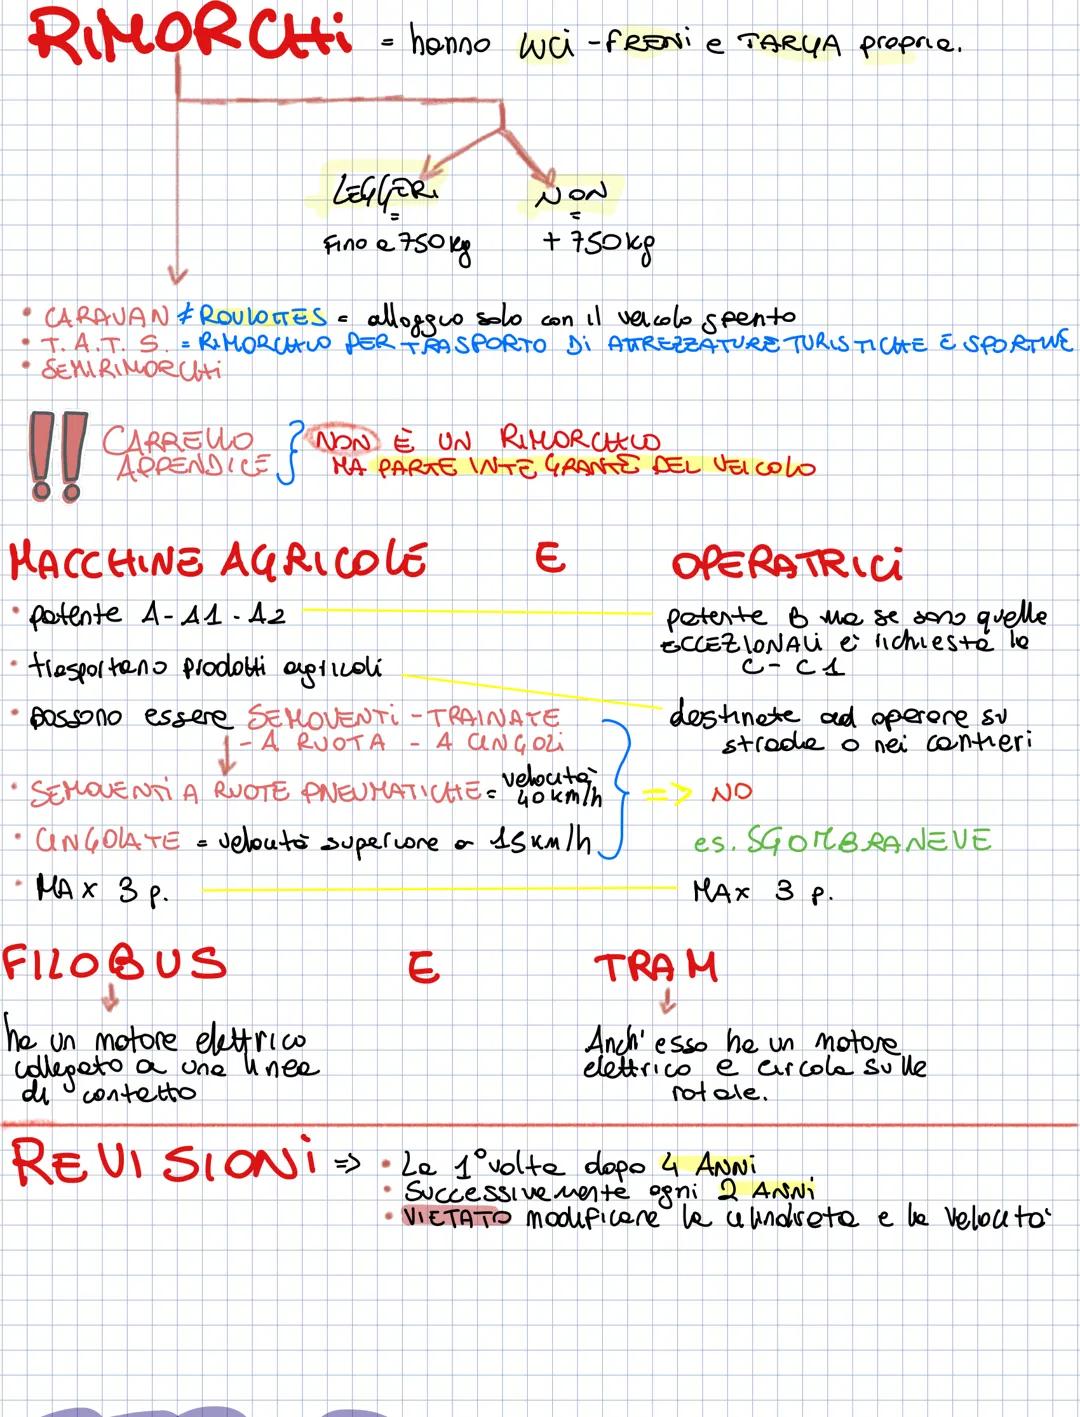 RIMORCHi = hanno luci - FRENi e TARGA propria.
LEGGERi NON
= =
Fino a 750 kg + 750 kg
• CARAVAN ≠ ROULOTTES = alloggio solo con il veicolo spento
• T. A. T. S. = RIMORCHIO PER TRASPORTO Di ATTREZZATURE TURISTICHE E SPORTIVE
• SEMIRIMORCHi
!! CARRELLO { NON È UN RIMORCHIO
APPENDICE MA PARTE INTEGRANTE DEL VEICOLO
MACCHINE AGRICOLE E OPERATRICi
• patente A - A1 - A2
patente B ma se sono quelle
ECCEZIONALi è richiesta la
C - C1
• trasportano prodotti agricoli
destinate ad operare su
strada o nei cantieri
• possono essere SEMOVENTi - TRAINATE
- A RUOTA - A CINGOLi
• SEMOVENTi A RUOTE PNEUMATICHE = velocità
40 km/h
=> NO
• CINGOLATE = velocità superiore a 15 km/h
es. SGOMBRANEVE
• MAX 3 p. MAX 3 p.
FILOBUS E TRAM
ha un motore elettrico
collegato a una linea
di contatto
Anch' esso ha un motore
elettrico e circola sulle
rotaie.
REVISIONi => • La 1° volta dopo 4 ANNi
• Successivamente ogni 2 ANNi
• VIETATO modificare la cilindrata e la velocità